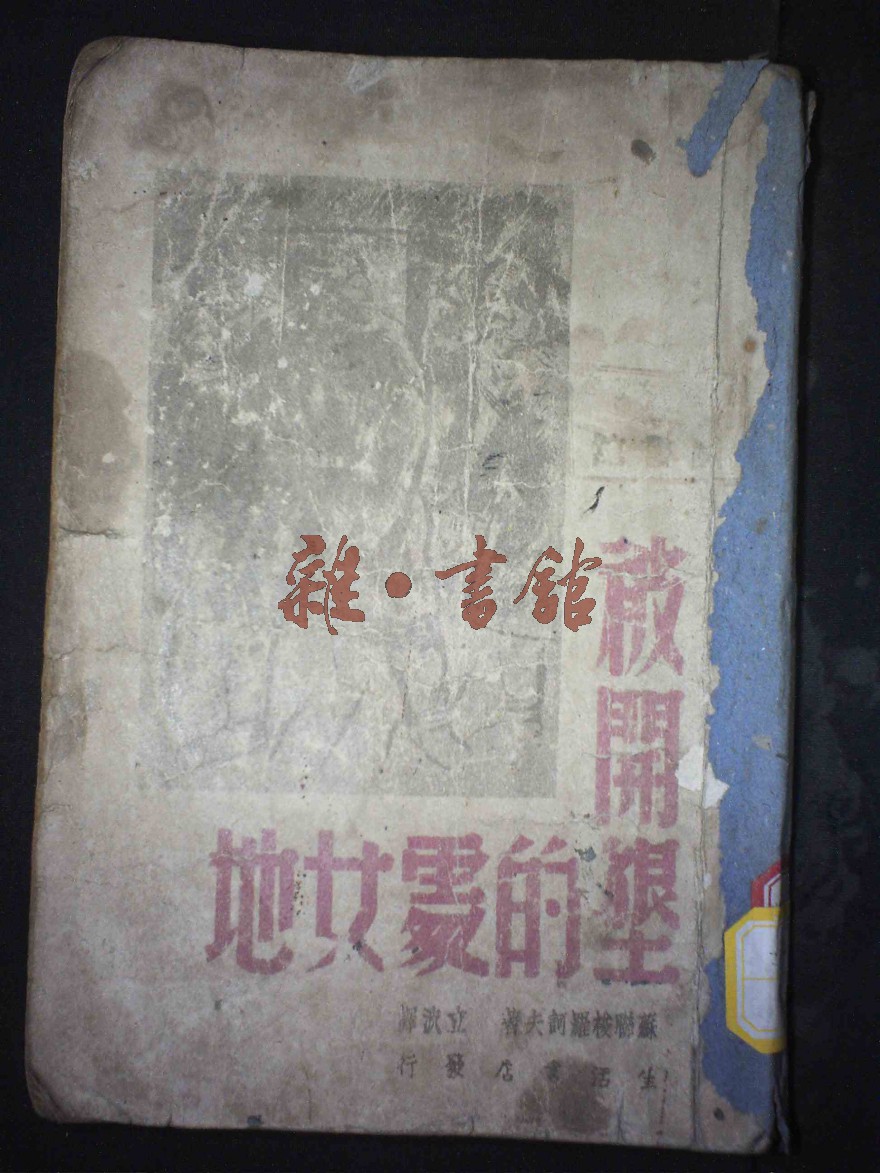 雜·書館
被
開
墾的處女地
蘇聯梭羅訶夫著 立波譯
生活書店發行